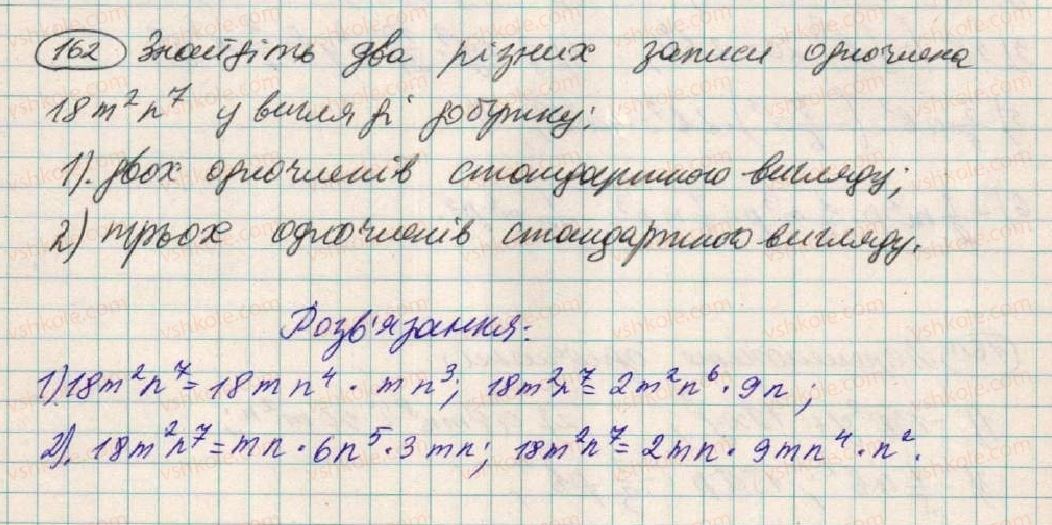 162 Знайдіть два різних записи одночлена
18m²n⁷ у вигляді добутку:
1). двох одночленів стандартного вигляду;
2) трьох одночленів стандартного вигляду.
Розв'язання:
1). 18m²n⁷ = 18mn⁴ · mn³; 18m²n⁷ = 2m²n⁶ · 9n;
2). 18m²n⁷ = mn · 6n⁵ · 3mn; 18m²n⁷ = 2mn · 9mn⁴ · n².